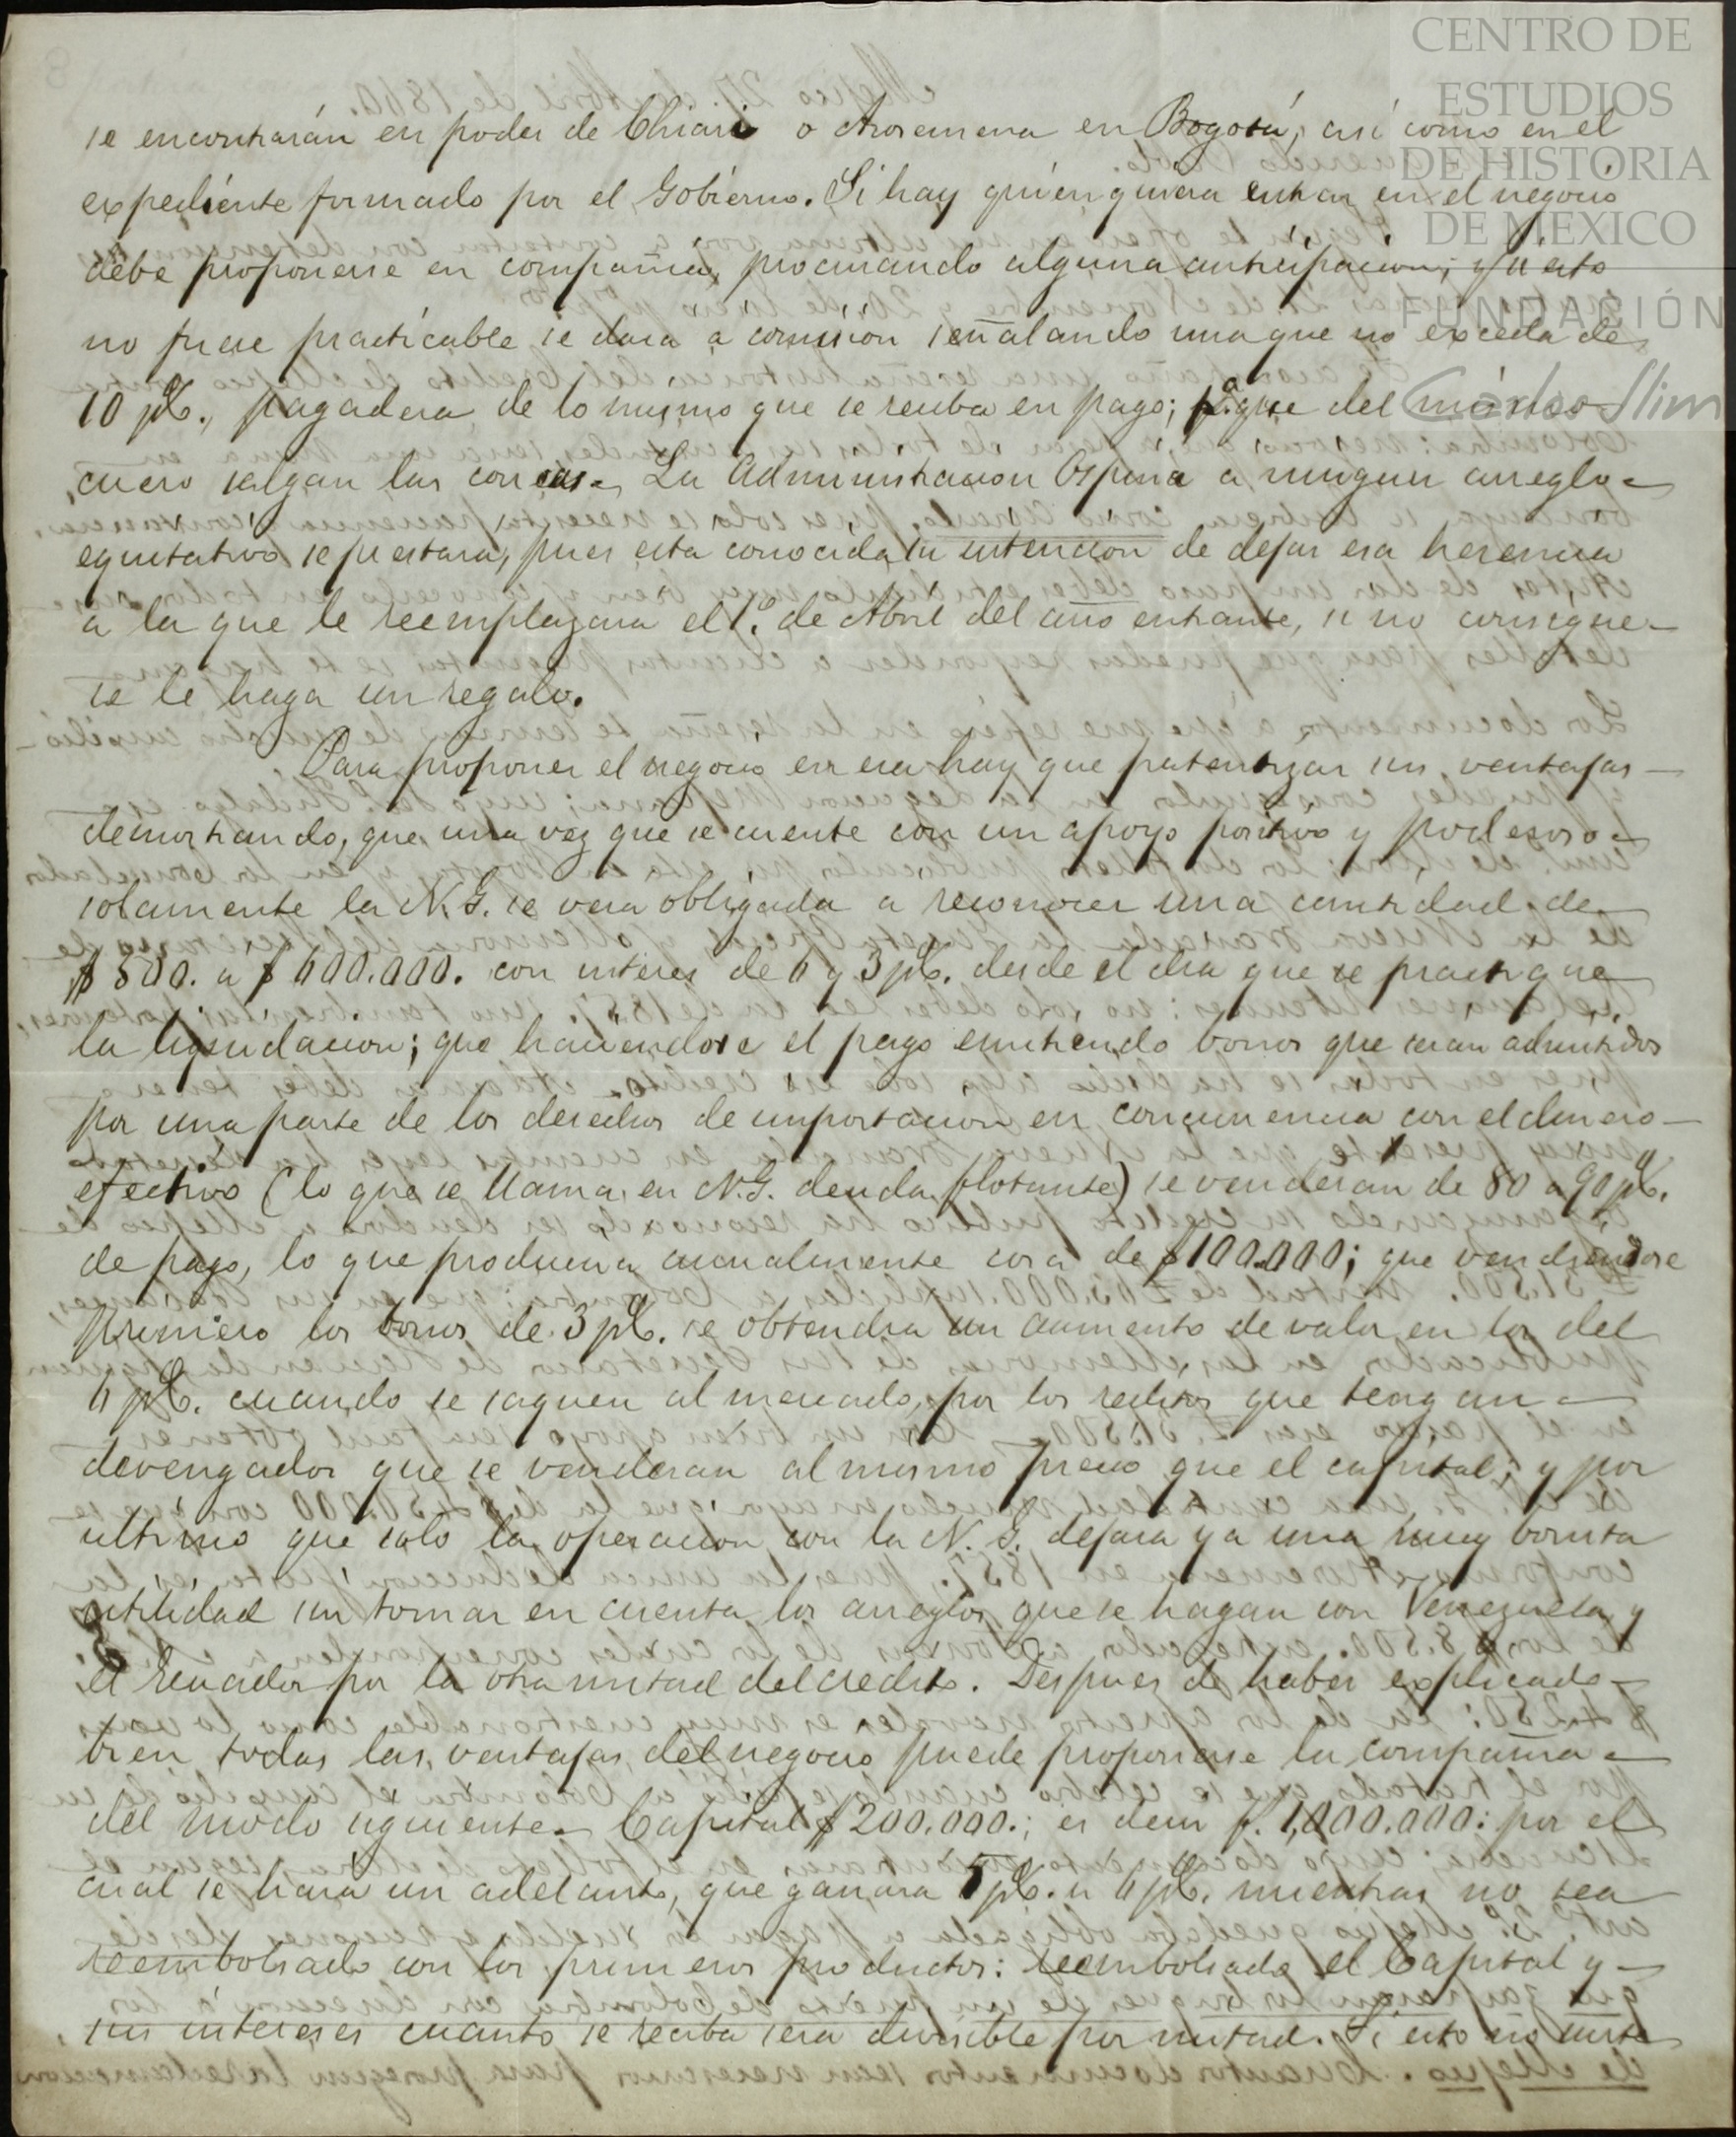 CENTRO DE
ESTUDIOS
DE HISTORIA
DE MEXICO
FUNDACIÓN
Carlos Slim
se encontrarán en poder de Chiari o Arosemena en Bogotá; así como en el
expediente formado por el Gobierno. Si hay quien quiera entrar en el negocio
debe proponerse en compañia, procurando alguna anticipacion; y si esto
no fuere practicable se dara a comision señalando una que no exceda de
10 p%., pagadera de lo mismo que se reciba en pago; pa. que del mismo
cuero salgan las correas. La Administracion Ospina a ningun arreglo
equitativo se prestara, pues esta conocida su intencion de dejar esa herencia
a la que le reemplazara el 1o. de Abril del año entrante, si no consigue
se le haga un regalo.
Para proponer el negocio en esa hay que patentizar sus ventajas
demostrando, que una vez que se cuente con un apoyo positivo y poderoso
solamente la N.G. se vera obligada a reconocer una cantidad de
$ 300. a $ 400.000. con interes de 6 y 3 p%. desde el dia que se practique
la liquidacion; que haciendose el pago emitiendo bonos que sean admitidos
por una parte de los derechos de importacion en concurrencia con el dinero
efectivo (lo que se llama en N.G. deuda flotante) se venderan de 80 a 90 p%.
de pago, lo que producira anualmente cosa de $100.000; que vendiendose
primero los bonos de 3 p%. se obtendra un aumento de valor en los del
6 p%. cuando se saquen al mercado, por los reditos que tengan
devengados que se venderan al mismo precio que el capital; y por
ultimo que solo la operacion con la N.G. dejara ya una muy bonita
utilidad sin tomar en cuenta los arreglos que se hagan con Venezuela y
el Ecuador por la otra mitad del credito. Despues de haber explicado
bien todas las ventajas del negocio puede proponerse la compañia
del modo siguiente. Capital $ 200.000.; es decir f. 1,000.000: por el
cual se hara un adelanto, que ganara 5 p%. u 6 p%. mientras no sea
reembolsado con los primeros productos: reembolsado el Capital y
sus intereses cuanto se reciba sera divisible por mitad. Si esto no surte